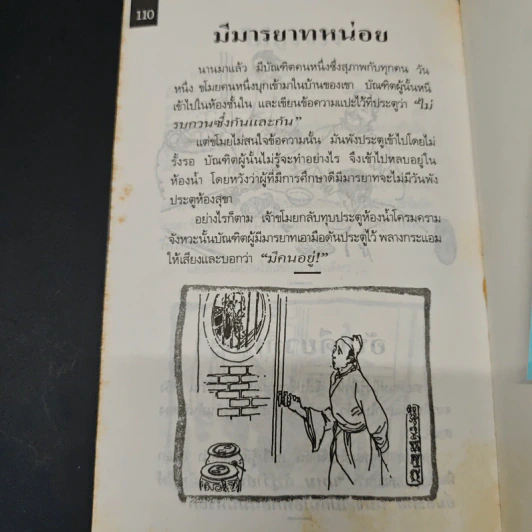 110
มีมารยาทหน่อย
นานมาแล้ว มีบัณฑิตคนหนึ่งซึ่งสุภาพกับทุกคน วัน
หนึ่ง ขโมยคนหนึ่งบุกเข้ามาในบ้านของเขา บัณฑิตผู้นั้นหนี
เข้าไปในห้องชั้นใน และเขียนข้อความแปะไว้ที่ประตูว่า "ไม่
รบกวนซึ่งกันและกัน"
แต่ขโมยไม่สนใจข้อความนั้น มันพังประตูเข้าไปโดยไม่
รั้งรอ บัณฑิตผู้นั้นไม่รู้จะทำอย่างไร จึงเข้าไปหลบอยู่ใน
ห้องน้ำ โดยหวังว่าผู้ที่มีการศึกษาดีมีมารยาทจะไม่มีวันพัง
ประตูห้องสุขา
อย่างไรก็ตาม เจ้าขโมยกลับทุบประตูห้องน้ำโครมคราม
จังหวะนั้นบัณฑิตผู้มีมารยาทเอามือดันประตูไว้ พลางกระแอม
ให้เสียงและบอกว่า "มีคนอยู่!"